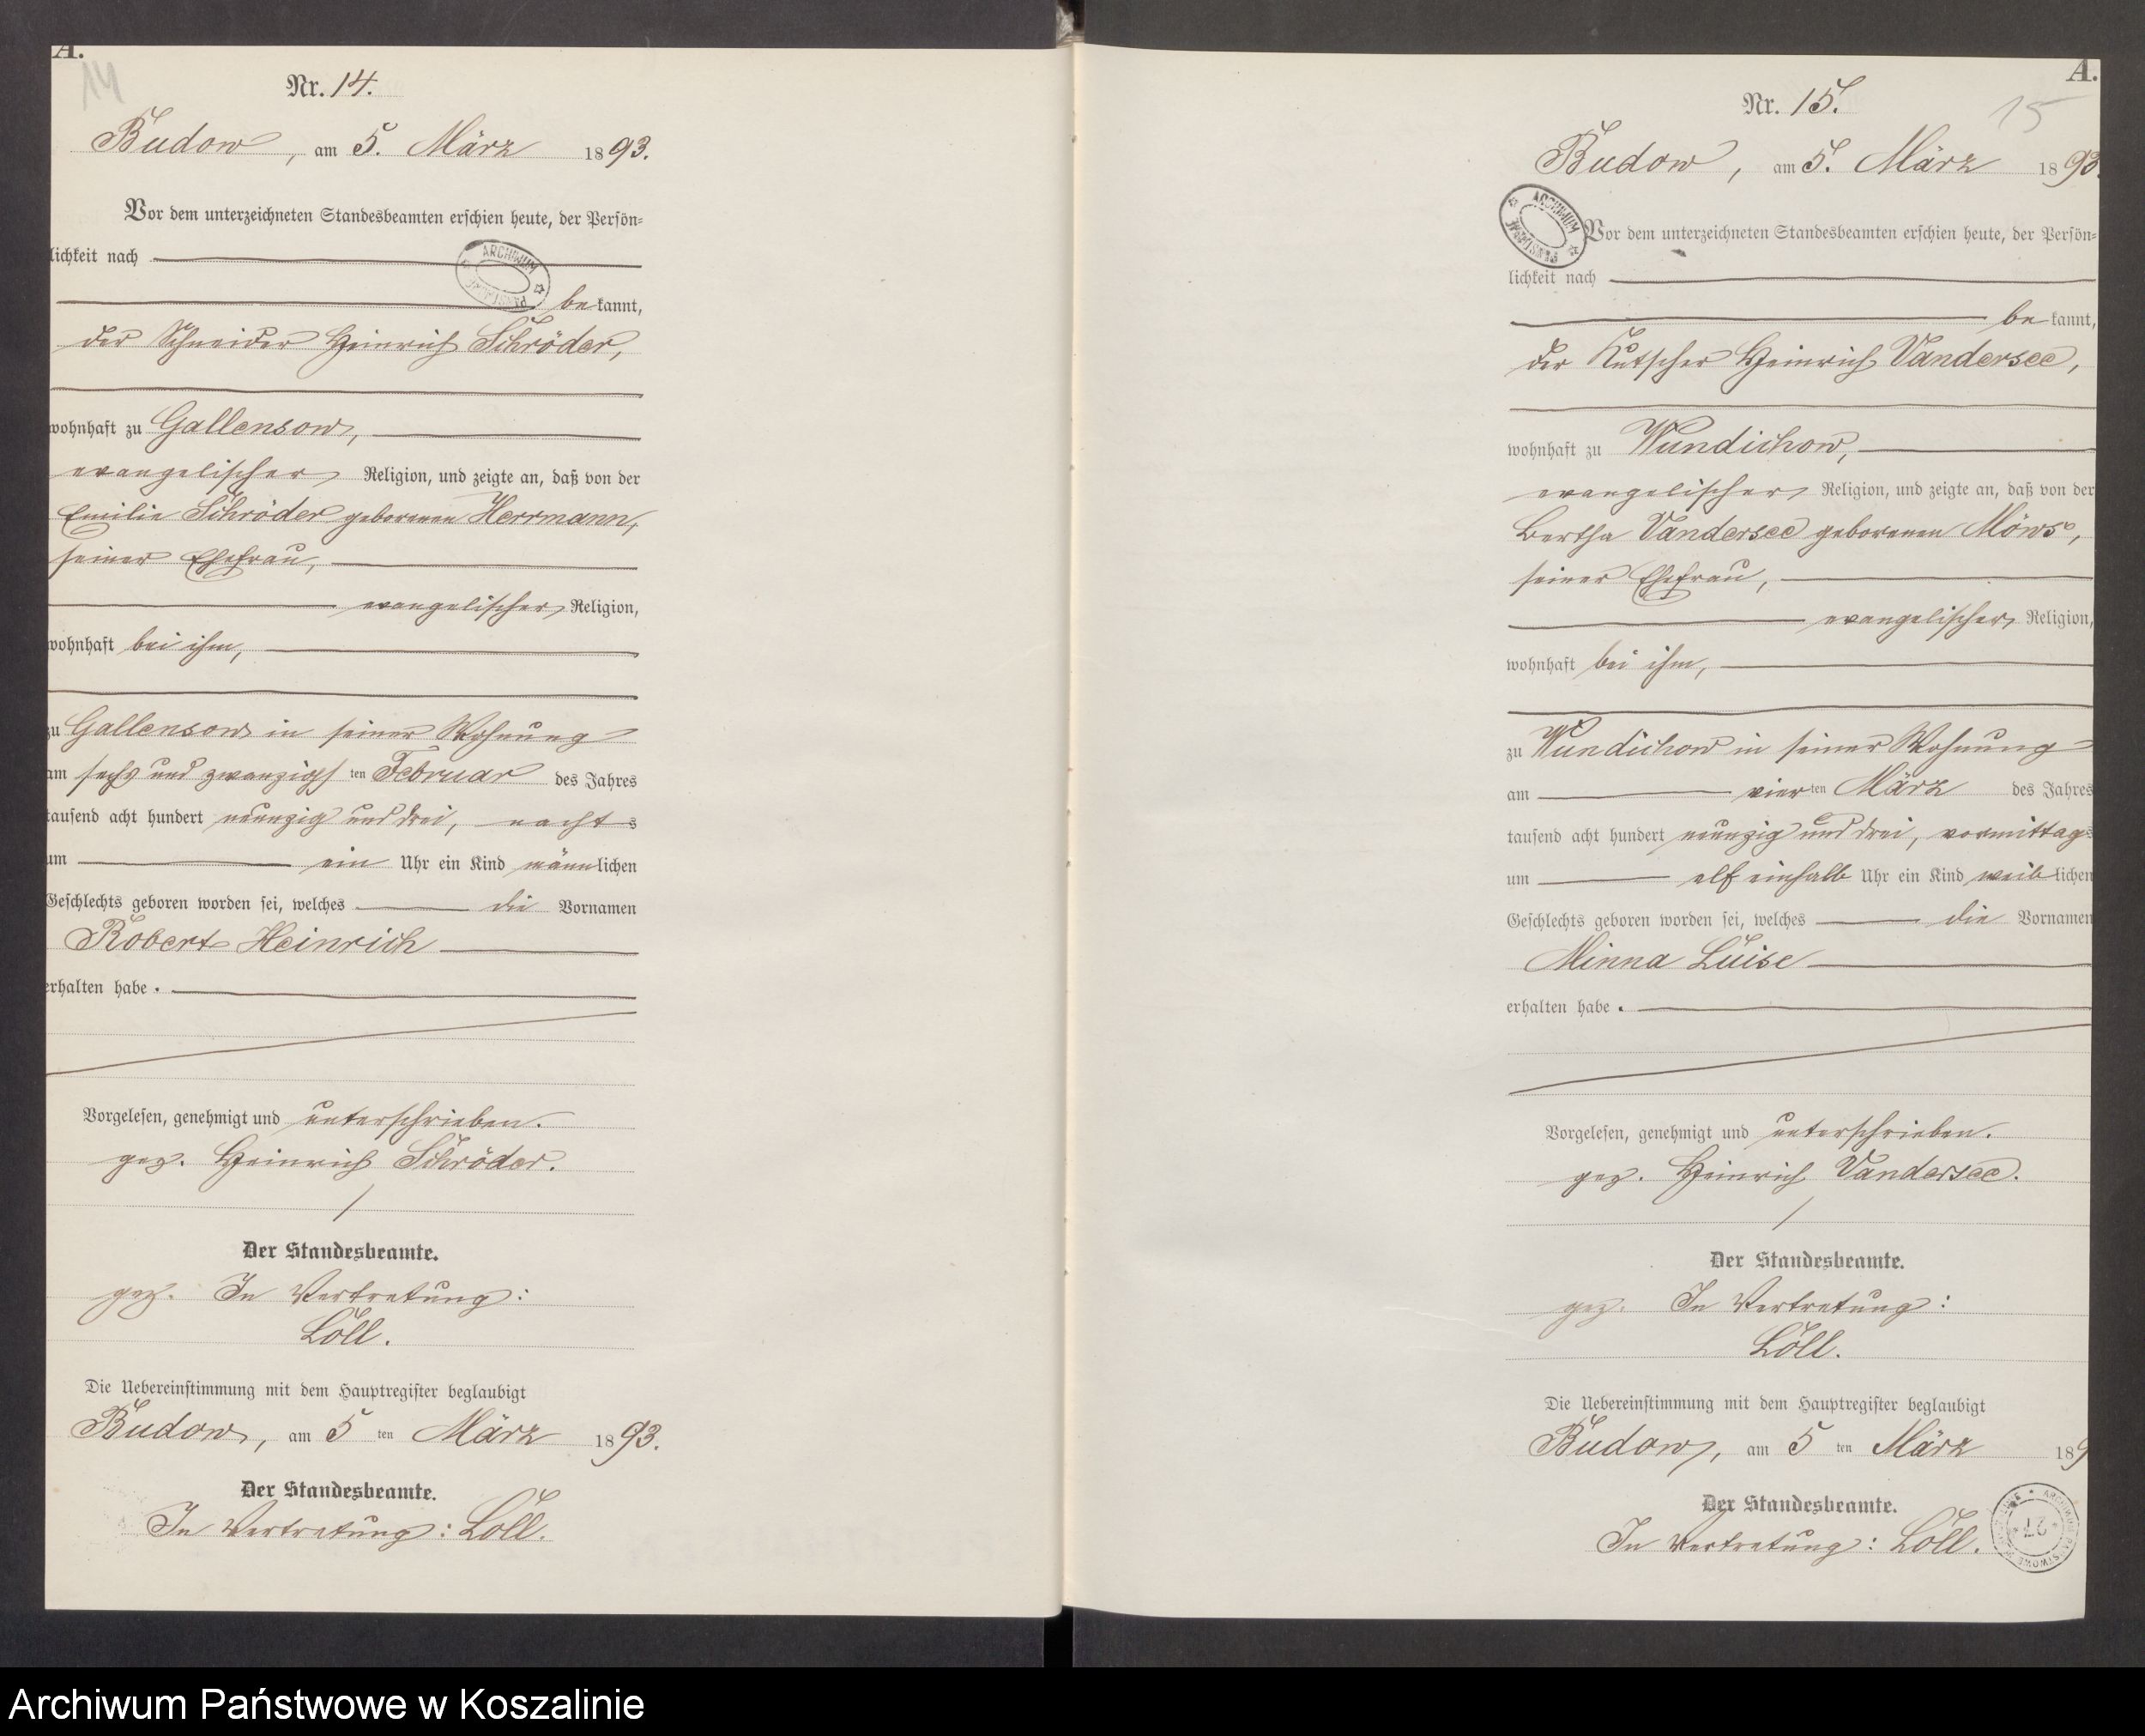 A.
14
Nr. 14.
Budow, am 5. März 1893.
Vor dem unterzeichneten Standesbeamten erschien heute, der Persön=
lichkeit nach
bekannt,
der Schneider Heinrich Schröder,
wohnhaft zu Gallensow,
evangelischer Religion, und zeigte an, daß von der
Emilie Schröder geborenen Herrmann,
seiner Ehefrau,
evangelischer Religion,
wohnhaft bei ihm,
zu Gallensow in seiner Wohnung
am sechs und zwanzigsten Februar des Jahres
tausend acht hundert neunzig und drei, nachts
um ein Uhr ein Kind männlichen
Geschlechts geboren worden sei, welches die Vornamen
Robert Heinrich
erhalten habe.
Vorgelesen, genehmigt und unterschrieben.
gez. Heinrich Schröder.
Der Standesbeamte.
gez. In Vertretung:
Löll.
Die Uebereinstimmung mit dem Hauptregister beglaubigt
Budow, am 5ten März 1893.
Der Standesbeamte.
In Vertretung: Löll.
ARCHIWUM
A.
15
Nr. 15.
Budow, am 5. März 1893.
Vor dem unterzeichneten Standesbeamten erschien heute, der Persön=
lichkeit nach
bekannt,
der Kutscher Heinrich Vandersee,
wohnhaft zu Wundichow,
evangelischer Religion, und zeigte an, daß von der
Bertha Vandersee geborenen Möws,
seiner Ehefrau,
evangelischer Religion,
wohnhaft bei ihm,
zu Wundichow in seiner Wohnung
am vierten März des Jahres
tausend acht hundert neunzig und drei, vormittags
um elf einhalb Uhr ein Kind weiblichen
Geschlechts geboren worden sei, welches die Vornamen
Minna Luise
erhalten habe.
Vorgelesen, genehmigt und unterschrieben.
gez. Heinrich Vandersee.
Der Standesbeamte.
gez. In Vertretung:
Löll.
Die Uebereinstimmung mit dem Hauptregister beglaubigt
Budow, am 5ten März 189
Der Standesbeamte.
In Vertretung: Löll.
ARCHIWUM
Archiwum Państwowe w Koszalinie